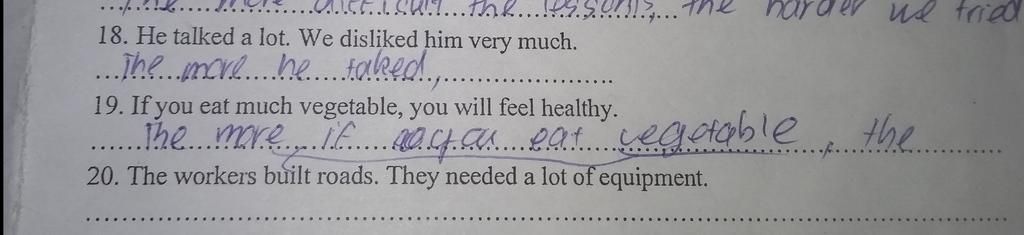 ...The more difficult the lessons, the harder we tried
18. He talked a lot. We disliked him very much.
...The more he taked,........................
19. If you eat much vegetable, you will feel healthy.
......The more if you eat vegetable, the............
20. The workers built roads. They needed a lot of equipment.